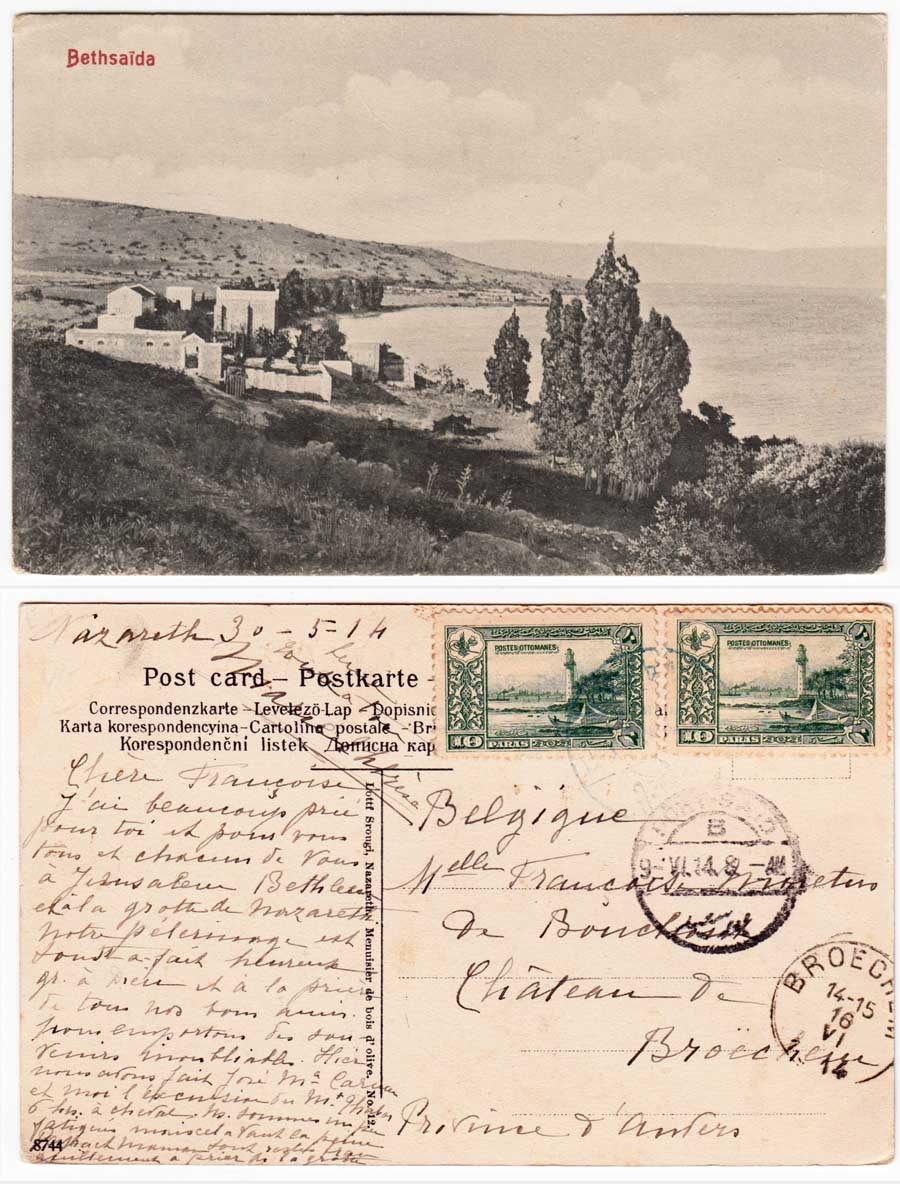 Bethsaïda
Nazareth 30-5-14
Post card – Postkarte –
Correspondenzkarte – Levelező-Lap – Dopisnic
Karta korespondencyina – Cartolina postale – Br
Korespondenční listek Дописна кар
POSTES·OTTOMANES
10 PARAS
POSTES·OTTOMANES
10 PARAS
Chère Françoise
J'ai beaucoup prié
pour toi et pour vous
tous et chacun de vous
à Jérusalem Bethleem
et à la grotte de Nazareth
notre pélerinage est
tout à fait heureux
gr. à Dieu et à la prière
de tous nos bons amis.
nous emportons des sou
venirs inoubliables. Hier
nous avons fait José Ma
et moi l'excursion du Mt Thabor
6 hrs. à cheval. Ns. sommes un peu
fatigués mais cela vaut la peine
Maman
à prier de la grotte
8744
Lottf Srougi, Nazareth, Menuisier de bois d'olive. No. 12.
Belgique
Melle Françoise
de
Château de
Broëchem
Province d'Anvers
PORT-SAID
B
9-VI.14. -AM
بور سعيد
BROECHEM
14-15
16
VI
14